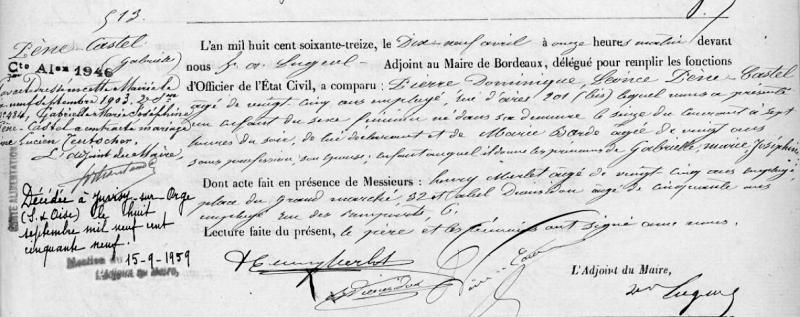 513
Pène-Castel
(Gabrielle)
Cte Al 1946
par acte dressé en cette Mairie le
neuf septembre 1903
434, Gabrielle Marie Joséphine
Pène-Castel a contracté mariage
Lucien
L'adjoint du Maire,
Décédée à Juvisy-sur-Orge
(S. & Oise) le huit
septembre mil neuf cent
cinquante neuf.
Mention du 15-9-1959
L'Adjoint au Maire,
CARTE ALIMENTATION
L'an mil huit cent soixante-treize, le Dix-neuf avril à onze heures matin devant
nous Adjoint au Maire de Bordeaux, délégué pour remplir les fonctions
d'Officier de l'État Civil, a comparu : Pierre Dominique Pène-Castel
agé de vingt cinq ans employé, rue d'ares 201 (bis) lequel nous a présenté
un enfant du sexe féminin né dans sa demeure le seize du courant à sept
heures du soir, de lui déclarant et de Marie Borde agée de vingt ans
sans profession son épouse; enfant auquel il donne les prénoms de Gabrielle, Marie Joséphine
Dont acte fait en présence de Messieurs : henry Merlet agé de vingt cinq ans employé
place du Grand marché, 32 et abel agé de cinquante ans
employé rue des remparts, 6,
Lecture faite du présent, le père et les témoins ont signé avec nous.
Henry Merlet
L'Adjoint du Maire,